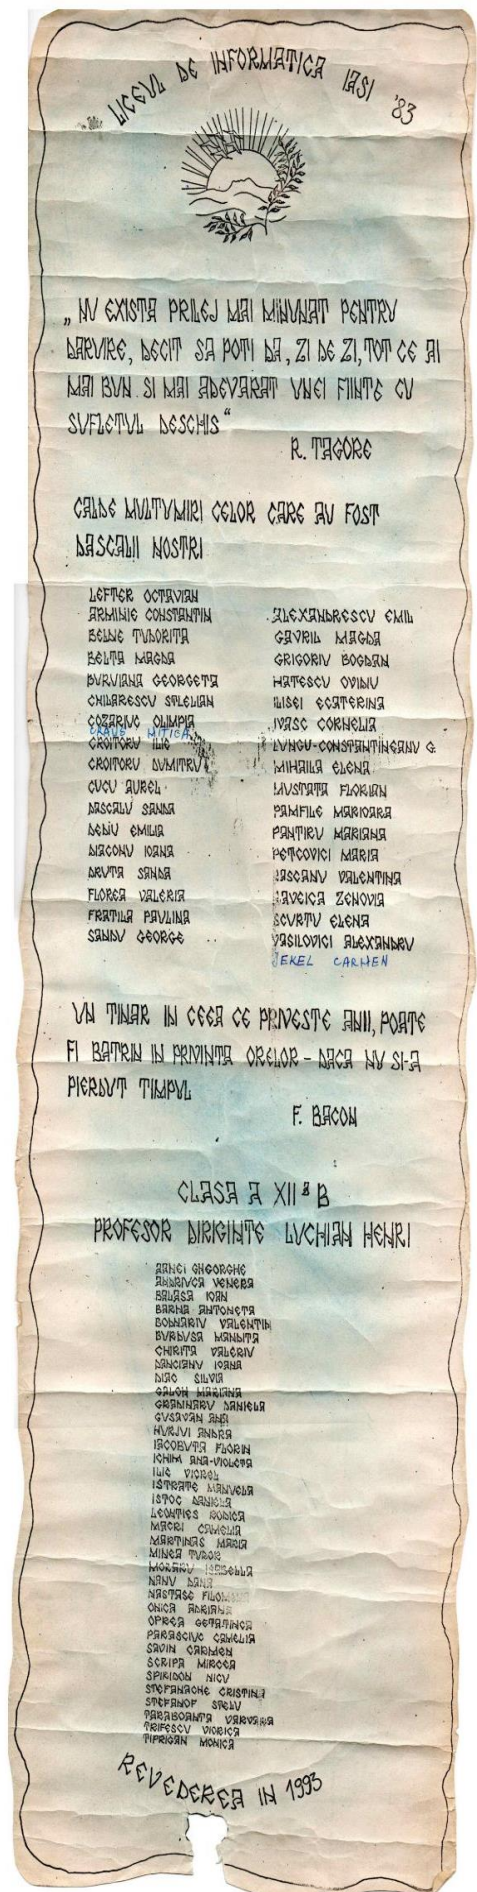 LICEUL DE INFORMATICA IASI '83
„ NU EXISTA PRILEJ MAI MINUNAT PENTRU
DARUIRE, DECIT SA POTI DA, ZI DE ZI, TOT CE AI
MAI BUN SI MAI ADEVARAT UNEI FIINTE CU
SUFLETUL DESCHIS "
R. TAGORE
CALDE MULTUMIRI CELOR CARE AU FOST
DASCALII NOSTRI
LEFTER OCTAVIAN
ARMINIE CONSTANTIN
BEJNE TUDORITA
BELTA MAGDA
BURUIANA GEORGETA
CHILARESCU STELIAN
COZARIUC OLIMPIA
CRAUS MITICA
CROITORU ILIE
CROITORU DUMITRU
CUCU AUREL
DASCALU SANDA
DEDIU EMILIA
DIACONU IOANA
DRUTA SANDA
FLOREA VALERIA
FRATILA PAULINA
SANDU GEORGE
ALEXANDRESCU EMIL
GAVRIL MAGDA
GRIGORIU BOGDAN
HATESCU OVIDIU
ILISEI ECATERINA
IVASC CORNELIA
LUNGU-CONSTANTINEANU G
MIHAILA ELENA
MUSTATA FLORIAN
PAMFILE MARIOARA
PANTIRU MARIANA
PETCOVICI MARIA
RASCANU VALENTINA
SAVEICA ZENOVIA
SCURTU ELENA
VASILOVICI ALEXANDRU
JEKEL CARMEN
UN TINAR IN CEEA CE PRIVESTE ANII, POATE
FI BATRIN IN PRIVINTA ORELOR - DACA NU SI-A
PIERDUT TIMPUL
F. BACON
CLASA A XII ª B
PROFESOR DIRIGINTE LUCHIAN HENRI
AANEI GHGORGHE
ANDRIUCA VENERA
BALASA IOAN
BARNA ANTONETA
BODNARIU VALENTIN
BURDUSA MANDITA
CHIRITA VALERIU
DANCIANU IOANA
DIAC SILVIA
GALON MARIANA
GRADINARU DANIELA
GUSAVAN ANA
HURJUI ANDRA
IACOBUTA FLORIN
ICHIM ANA-VIOLETA
ILIE VIOREL
ISTRATE MANUELA
ISTOC DANIELA
LEONTIES RODICA
MACRI CAMELIA
MARTINAS MARIA
MINEA TUDOR
MORARU ISABELLA
NANU DANA
NASTASE
ONICA ADRIANA
OPREA GETATINCA
PARASCIUC CAMELIA
SAVIN CARMEN
SCRIPA MIRCEA
SPIRIDON NICU
STEFANACHE CRISTINA
STEFANOF STELU
TARABOANTA VARVARA
TRIFESCU VIORICA
TIPRIGAN MONICA
REVEDEREA IN 1993